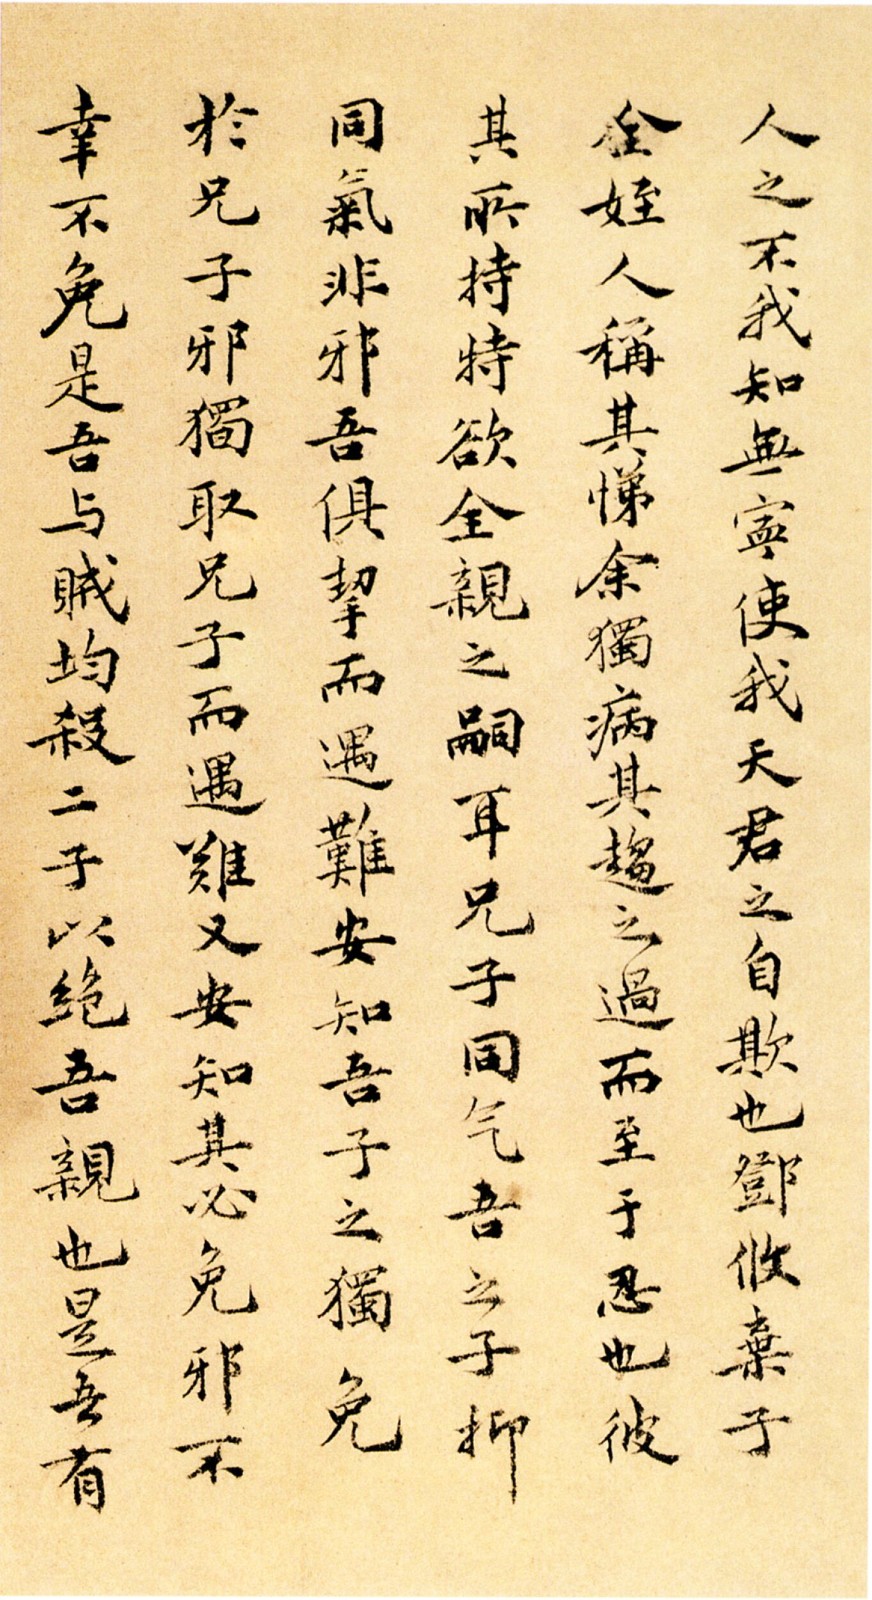 人之不我知無寧使我天君之自欺也鄧攸棄子
全姪人稱其悌余獨病其趨之過而至于忍也彼
其所持特欲全親之嗣耳兄子同气吾之子抑
同氣非邪吾俱挈而遇難安知吾子之獨免
於兄子邪獨取兄子而遇難又安知其必免邪不
幸不免是吾与賊均殺二子以绝吾親也是吾有